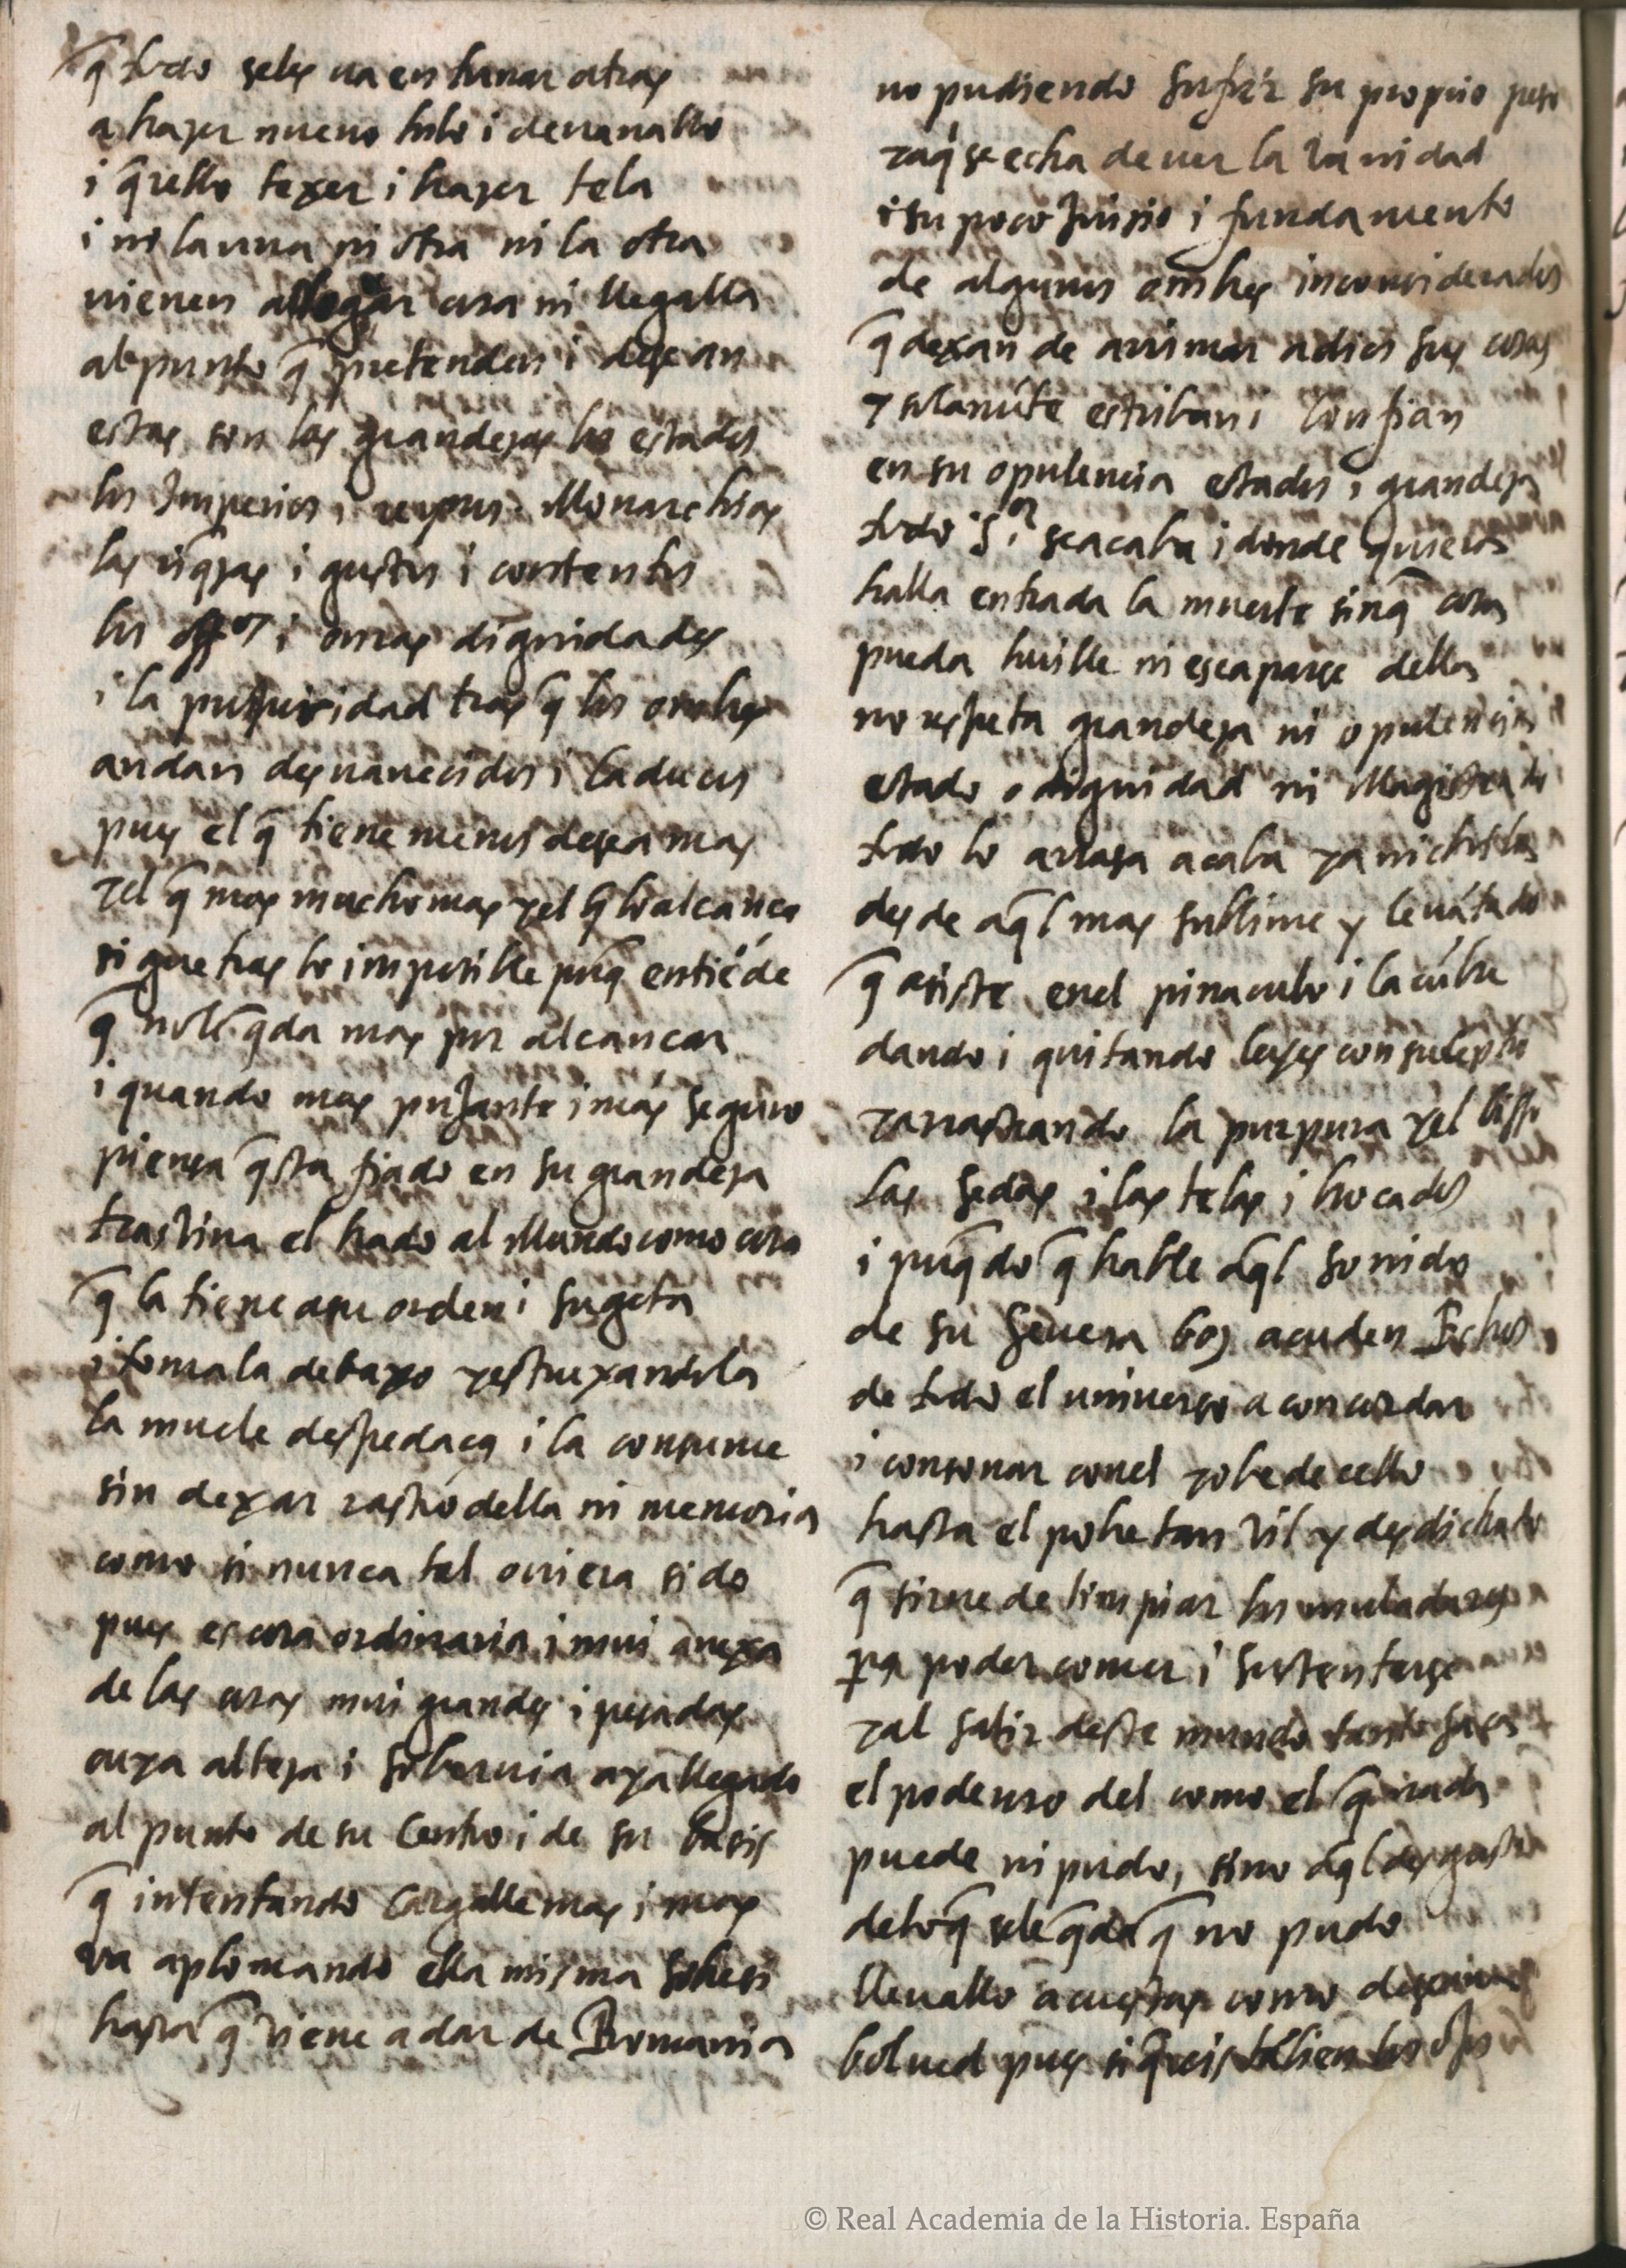 q̃ todo seles va en tornar atras
a hazer nueuo hilo i deuanallo
i q̃rello texer i hazer tela
i ni la una ni otra ni la otra
uienen allegar cosa ni llegalla
al punto q̃ pretenden i desean
estas son las grandezas los estados
los Imperios i reynos Monarchias
las riq̃zas i gustos i contentos
los i onras dignidades
i la prosperidad tras q̃ los onbres
andan desuanecidos i caducos
pues el q̃ tiene menos desea mas
y el q̃ mas mucho mas y el q̃ lo alcança
sigue tras lo imposible porq̃ entiẽde
q̃ no le q̃da mas por alcançar
i quando mas pujante i mas seguro
piensa q̃sta fiado en su grandeza
trastorna el hado al Mundo como cosa
q̃ la tiene a su orden i sugeta
i tomala debaxo y estruxandola
la muele despedaça i la consume
sin dexar rastro della ni memoria
como si nunca tal ouiera sido
pues es cosa ordinaria i mui anexa
de las cosas mui grandes i pesadas
cuya alteza i soberuia aya llegado
al punto de su Centro i de su basis
q̃ intentando cargalle mas i mas
va aplomando ella misma sobre si
hasta q̃ viene a dar de Romania
no pudiendo sufrir su propio peso
y aq̃ se echa de uer la vanidad
i su poco Juisio i fundamento
de algunos onbres inconsiderados
q̃ dexan de arrimar a dios sus cosas
y solamẽte estriban i confian
en su opulencia estados i grandeza
todo Sor se acaba i donde quiera
halla entrada la muerte sin q̃ cosa
pueda huille ni escaparse della
no respeta grandeza ni opulencia
estado o dignidad ni Magistrado
todo lo arrasa acaba y anichila
desde aq̃l mas sublime y leuãtado
q̃ asiste en el pinaculo i la cũbre
dando i quitando leyes con su ceptro
y arrastrando la purpura y el bisso
las sedas i las telas i brocados
i puq̃do q̃ hable aq̃l sonido
de su seuera boz acuden Echos
de todo el uniuerso a concordar
i consonar con el y obedecello
hasta el pobre tan vil y desdichado
q̃ sirue de limpiar los muladares
pa poder comer i sustentarse
y al salir deste mundo tanto saca
el poderoso del como el q̃ nada
puede ni pudo, sino aq̃l desgusto
de lo q̃ sele q̃da q̃ no pudo
lleuallo acuestas como
bolued pues si q̃reis tanbien los ojos
© Real Academia de la Historia. España